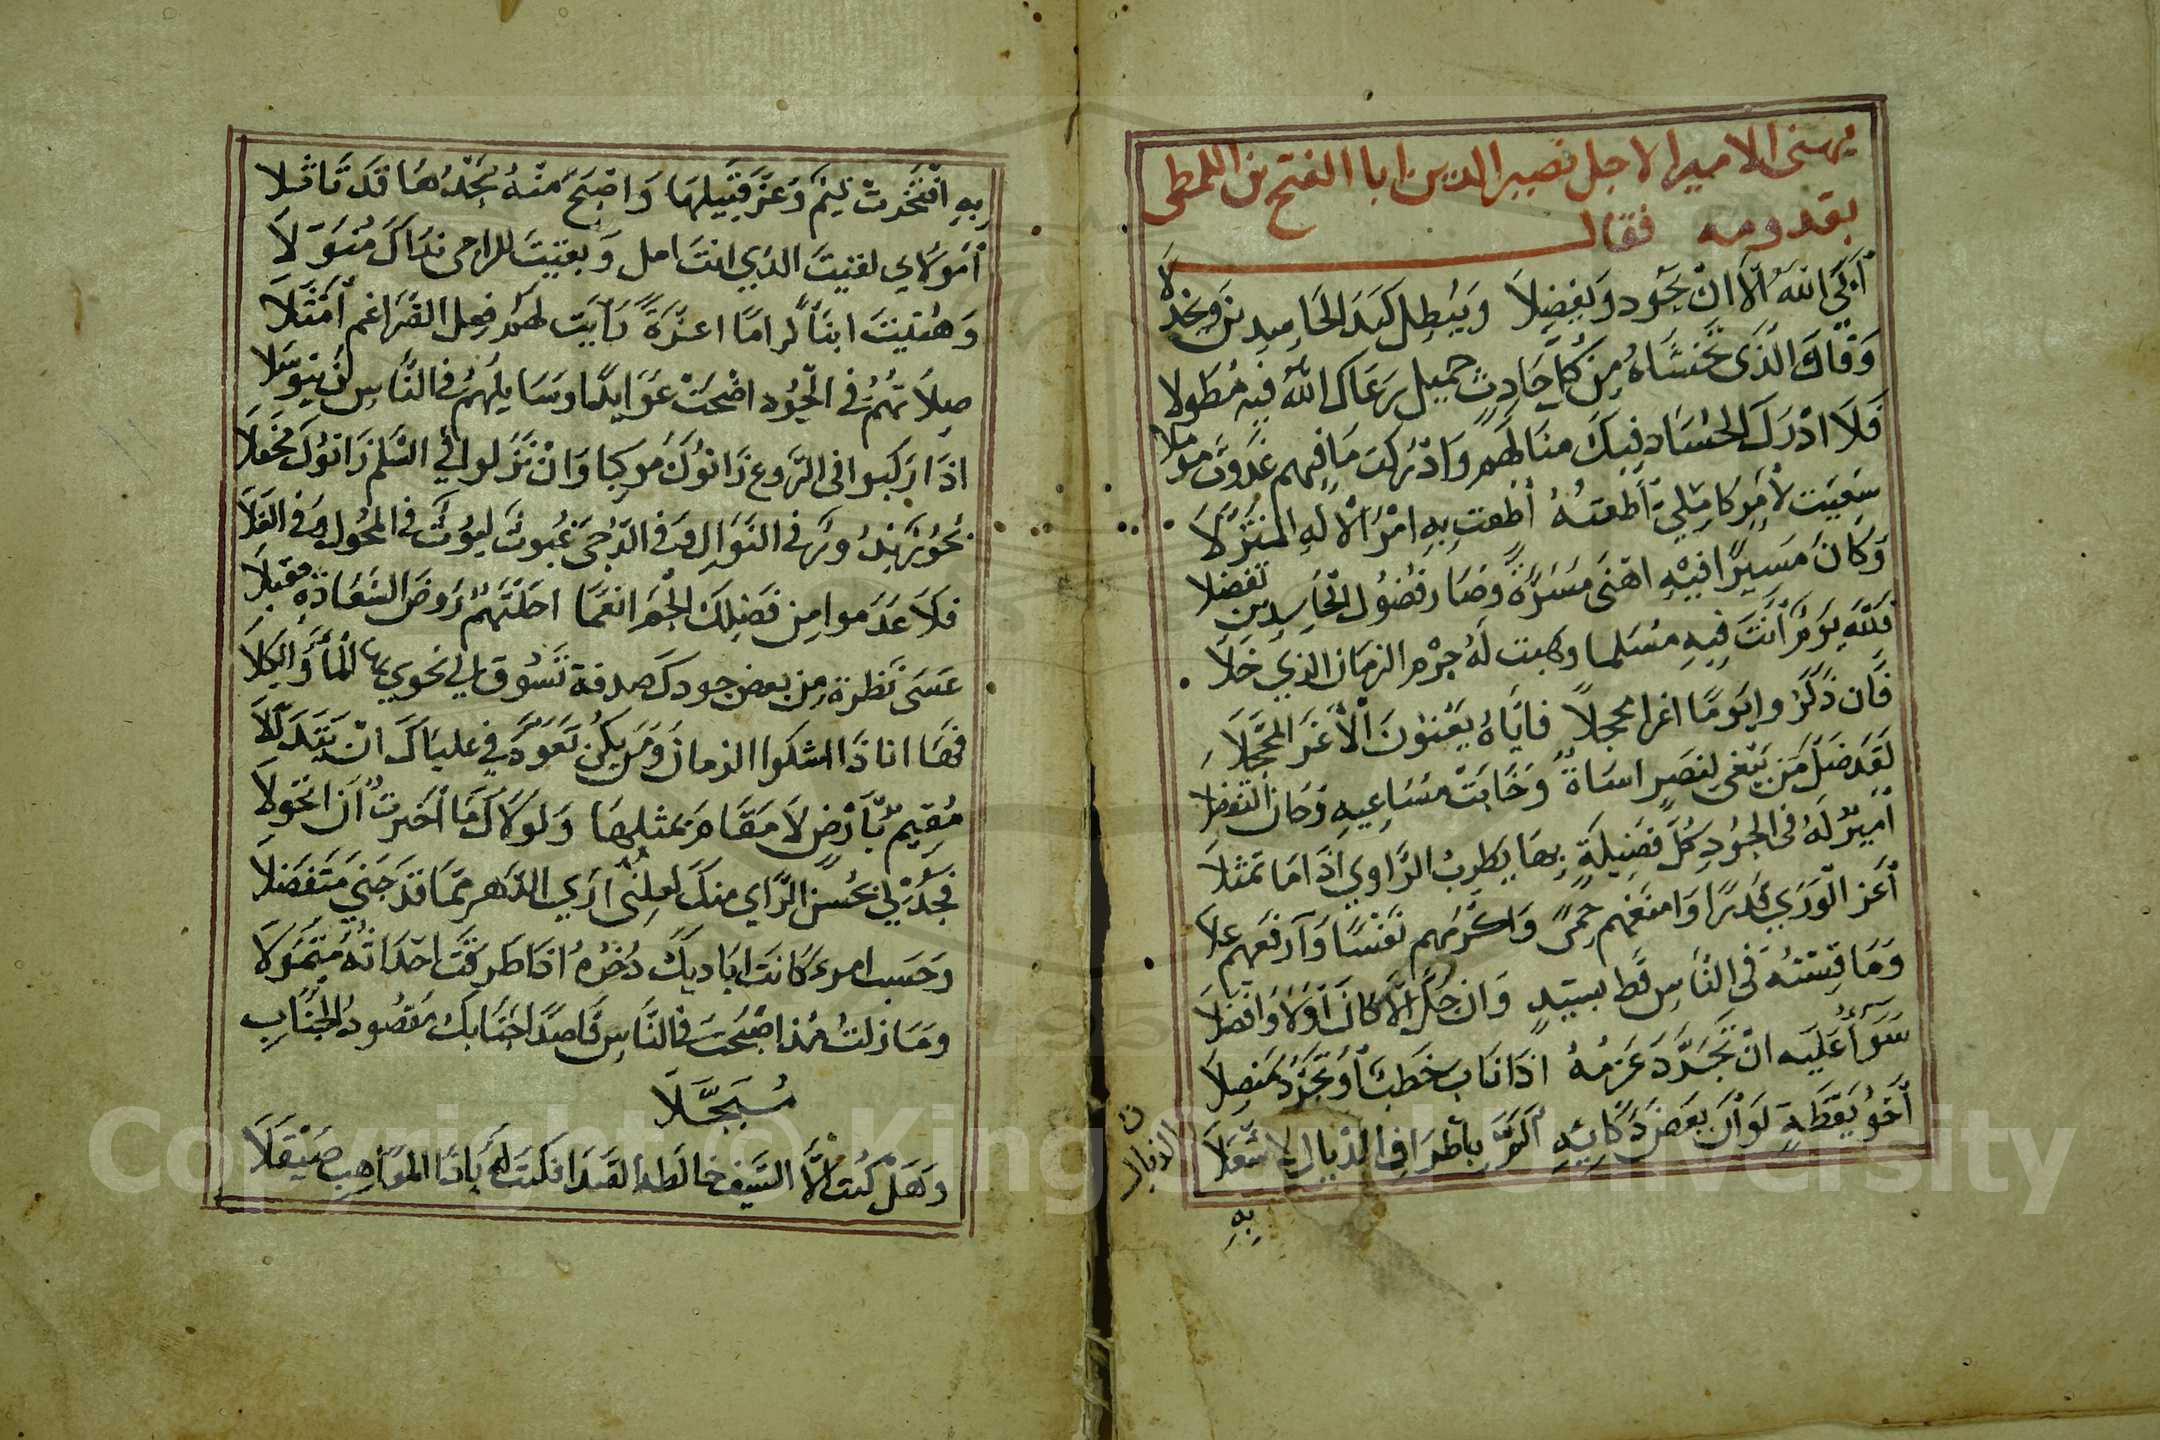 يهنى الامير الاجل نصير الدين ابا الفتح بن اللمطى
بقدومه فقال
أَبَى اللهُ اَلَّا انْ تَجُود وَيفضِلَا وَيُبْطِل كَيَدَ الحَاسِدِينَ وَيخذلَا
وَقَاكَ الَّذَى تَخْشَاهُ مِنْ كُلِّ حَادِثٍ جميل رَعَاك اللهُ فيِهِ مُطَولا
فَلَا ادْرَكَ الحُسَاد فِيكَ منَالَهم وَادْرَكتَ مَا فِيهم غَدَوتَ مؤملا
سَعَيَت لأَمرٍ كَامِلِيّ أَطعتهُ أَطعت بِهِ امْرَ الْالهِ المنَزَّلَا
وَكَانَ مَسِيرًا فيْهِ اهْنَى مَسَرَّةً وَصَارَ فضُول الْحَاسِدِين تفضلا
فَللَّهِ يَومٌ أَنتَ فِيهِ مسَلما وهبت لَهُ جرْم الزمان الذِي خَلَا
فَان ذَكَرُوا يَومًا اغرا محجلاً فايَاهُ يَعْنُونَ الْأَغَر المحَجَّلَا
لَقَد ضَلَ مَن يَبْغى لِنَصرٍ اسَاةً وَخَابَتْ مسَاعِيهِ وَحان التفضلا
أَمِيرٌ لَهُ فى الجُودِ كُلّ فَضِيلَةٍ بِهَا يطرب الرَّاوِي اذَا مَا تمثلا
أعَز الْوَرَي قَدرًا وَامنعهم حِمىً وَاكْرَمهم نَفْسًا وَأَرفَعهم علا
وَمَا قِسْتُهُ فى النَّاسِ قَط بسيّدٍ وَان جَلَّ الَّا كَانَ أَوْلَا وَافضَلَا
سَوَآءٌ عَلَيه انْ تَجَرَّدَ عَزمُهُ اذَا نَابَ خَطبٌ أَو تَجَرَّد مُنصِلا
أَخُو يَقَظَةٍ لَوْ أَنَّ بَعَضَ ذَكَائِهِ أَلَمَّ بِأطرَافِ الذبَال لاشعَلَا
الذبال
بِهِ
بِهِ افْتَخَرتْ تَيْم وَعَزَّ قبِيلهَا وَاصْبَحَ مِنْهُ مَجْدُهَا قد تأثلا
أمَولَاي لقيتَ الذِي انتَ امل وَبقيتَ للراجى نداكَ مُنَوّلَا
وَهُنيتَ ابنَاً كرامًا اعزةً رَأيت لهم فِعلِ الضرَاغم أَمْثَلَا
صِلَاتهُمُ فى الْجُودِ اضْحَتْ عَوَايِدًا وَسَايلهُمُ فى النَّاسِ لَن يتوسلا
اذَا رَكبوا فى الرَّوع زَانوُكَ مَوكِبا وَانْ نَزلوا فِي السَّلم زَانوُكَ محْفَلَا
بُحُورٌ بدُورٌ فى النَّوَالِ وَفى الدّجَى غيُوثٌ ليُوثٌ فى المحُولِ وَفى الفَلَا
فَلَا عَدَموا مِن فَضلِكَ الجم انعما احَلتَهُم رَوضَ السَّعَادَةِ مقبلَا
عَسَى نَظرة مِن بعض جودك صدفة تَسُوق الي نحوي بها الْمَأ وَالكلَا
فَهَا انا ذَا اشكوا الزمان وَمَن يكن تَعَوّدَ فِي علياكَ انْ يتَدَلَّلَا
مُقِيمٌ بأَرضٍ لَا مقَام بمثلهَا وَلَولَاكَ مَا أخترتُ ان اتحولَا
فَجُدْ لِي بحُسن الرَّاي منكَ لعلِنُى ارَي الدّهر ممَّا قد جَني متفضلا
وَحَسب امرءٍ كَانت اياديك ذخْرهُ اذا طرقَت احدَاثهُ مُتمَولَا
وَمَا زلتُ مُذ اصْبَحتَ فى النَّاسِ قاصدًا جَنَابكَ مَقصُودُ الجنَابِ
مُبَجَّلَا
وَهَل كُنت الَّا السَّيف خالَطه الصَدَا فكنتَ لهُ يَاذا المواهِب صَيْقَلَا